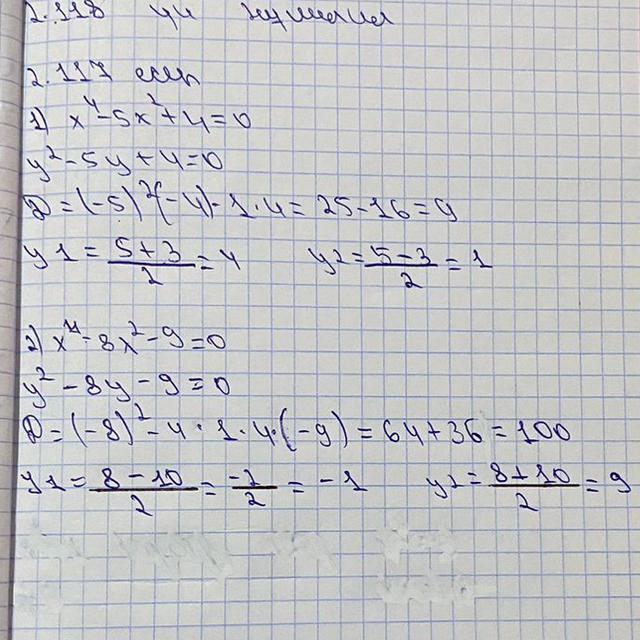 2.118 үй жұмысы
2.117 есеп
1) x⁴-5x²+4=0
y²-5y+4=0
D=(-5)²(-4)-1·4=25-16=9
y1=(5+3)/2=4 y2=(5-3)/2=1
2) x⁴-8x²-9=0
y²-8y-9=0
D=(-8)²-4·1·4·(-9)=64+36=100
y1=(8-10)/2=(-2)/2=-1 y2=(8+10)/2=9